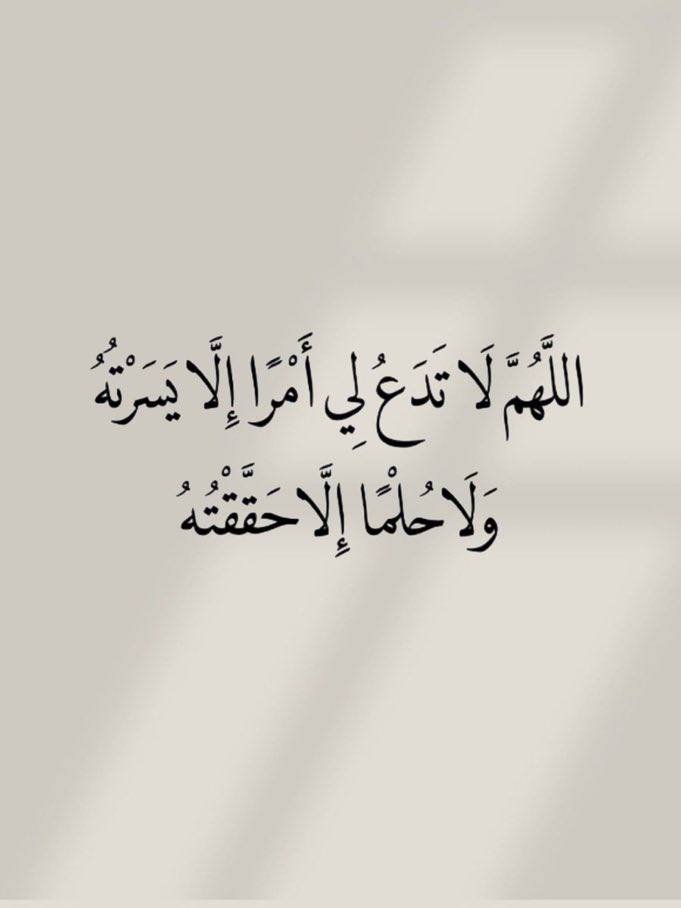 اللَّهُمَّ لَا تَدَعُ لِي أَمْرًا إِلَّا يَسَرْتُهُ
وَلَا حُلْمًا إِلَّا حَقَّقْتُهُ